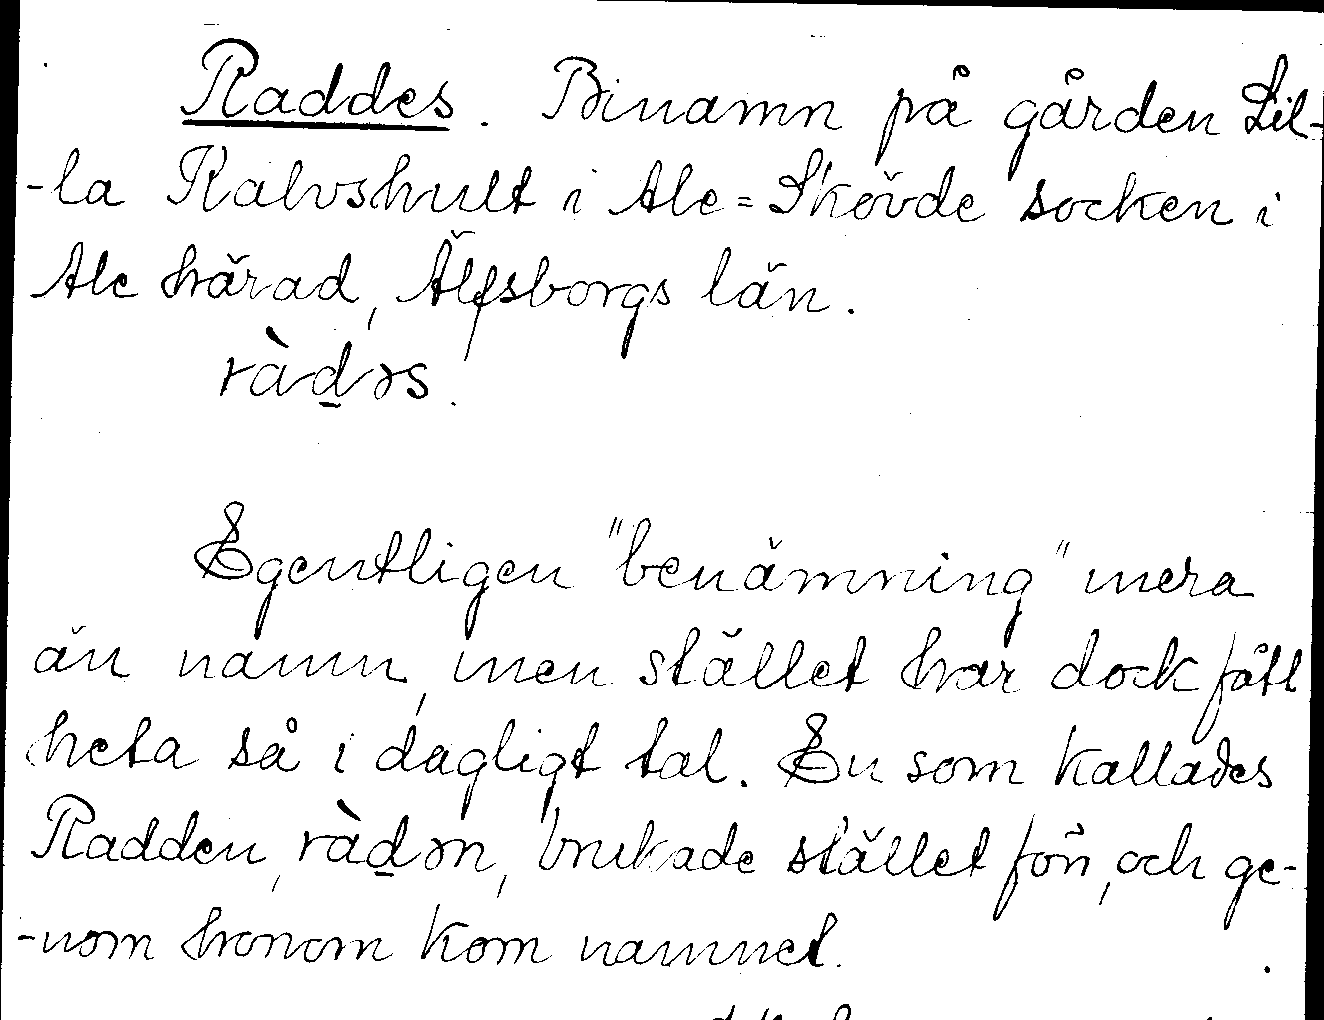 Raddes. Binamn på gården Lil-
-la Kalvshult i Ale=Skövde socken i
Ale härad, Älfsborgs län.
ràd̲əs.
Egentligen "benämning" mera
än namn, men stället har dock fått
heta så i dagligt tal. En som kallades
Radden, ràd̲ən, brukade stället förr, och ge-
-nom honom kom namnet.